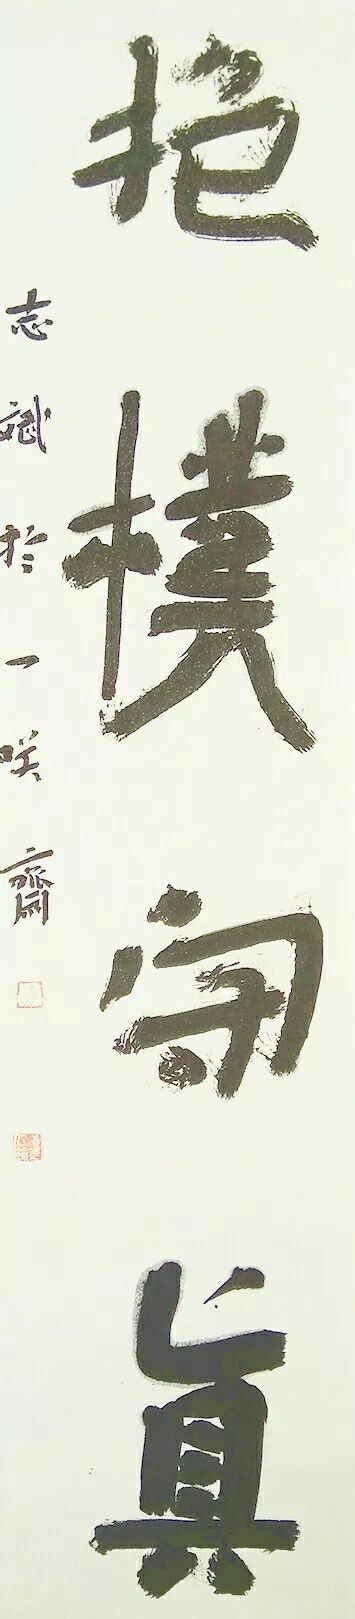 抱樸守眞
志斌於一咲齋